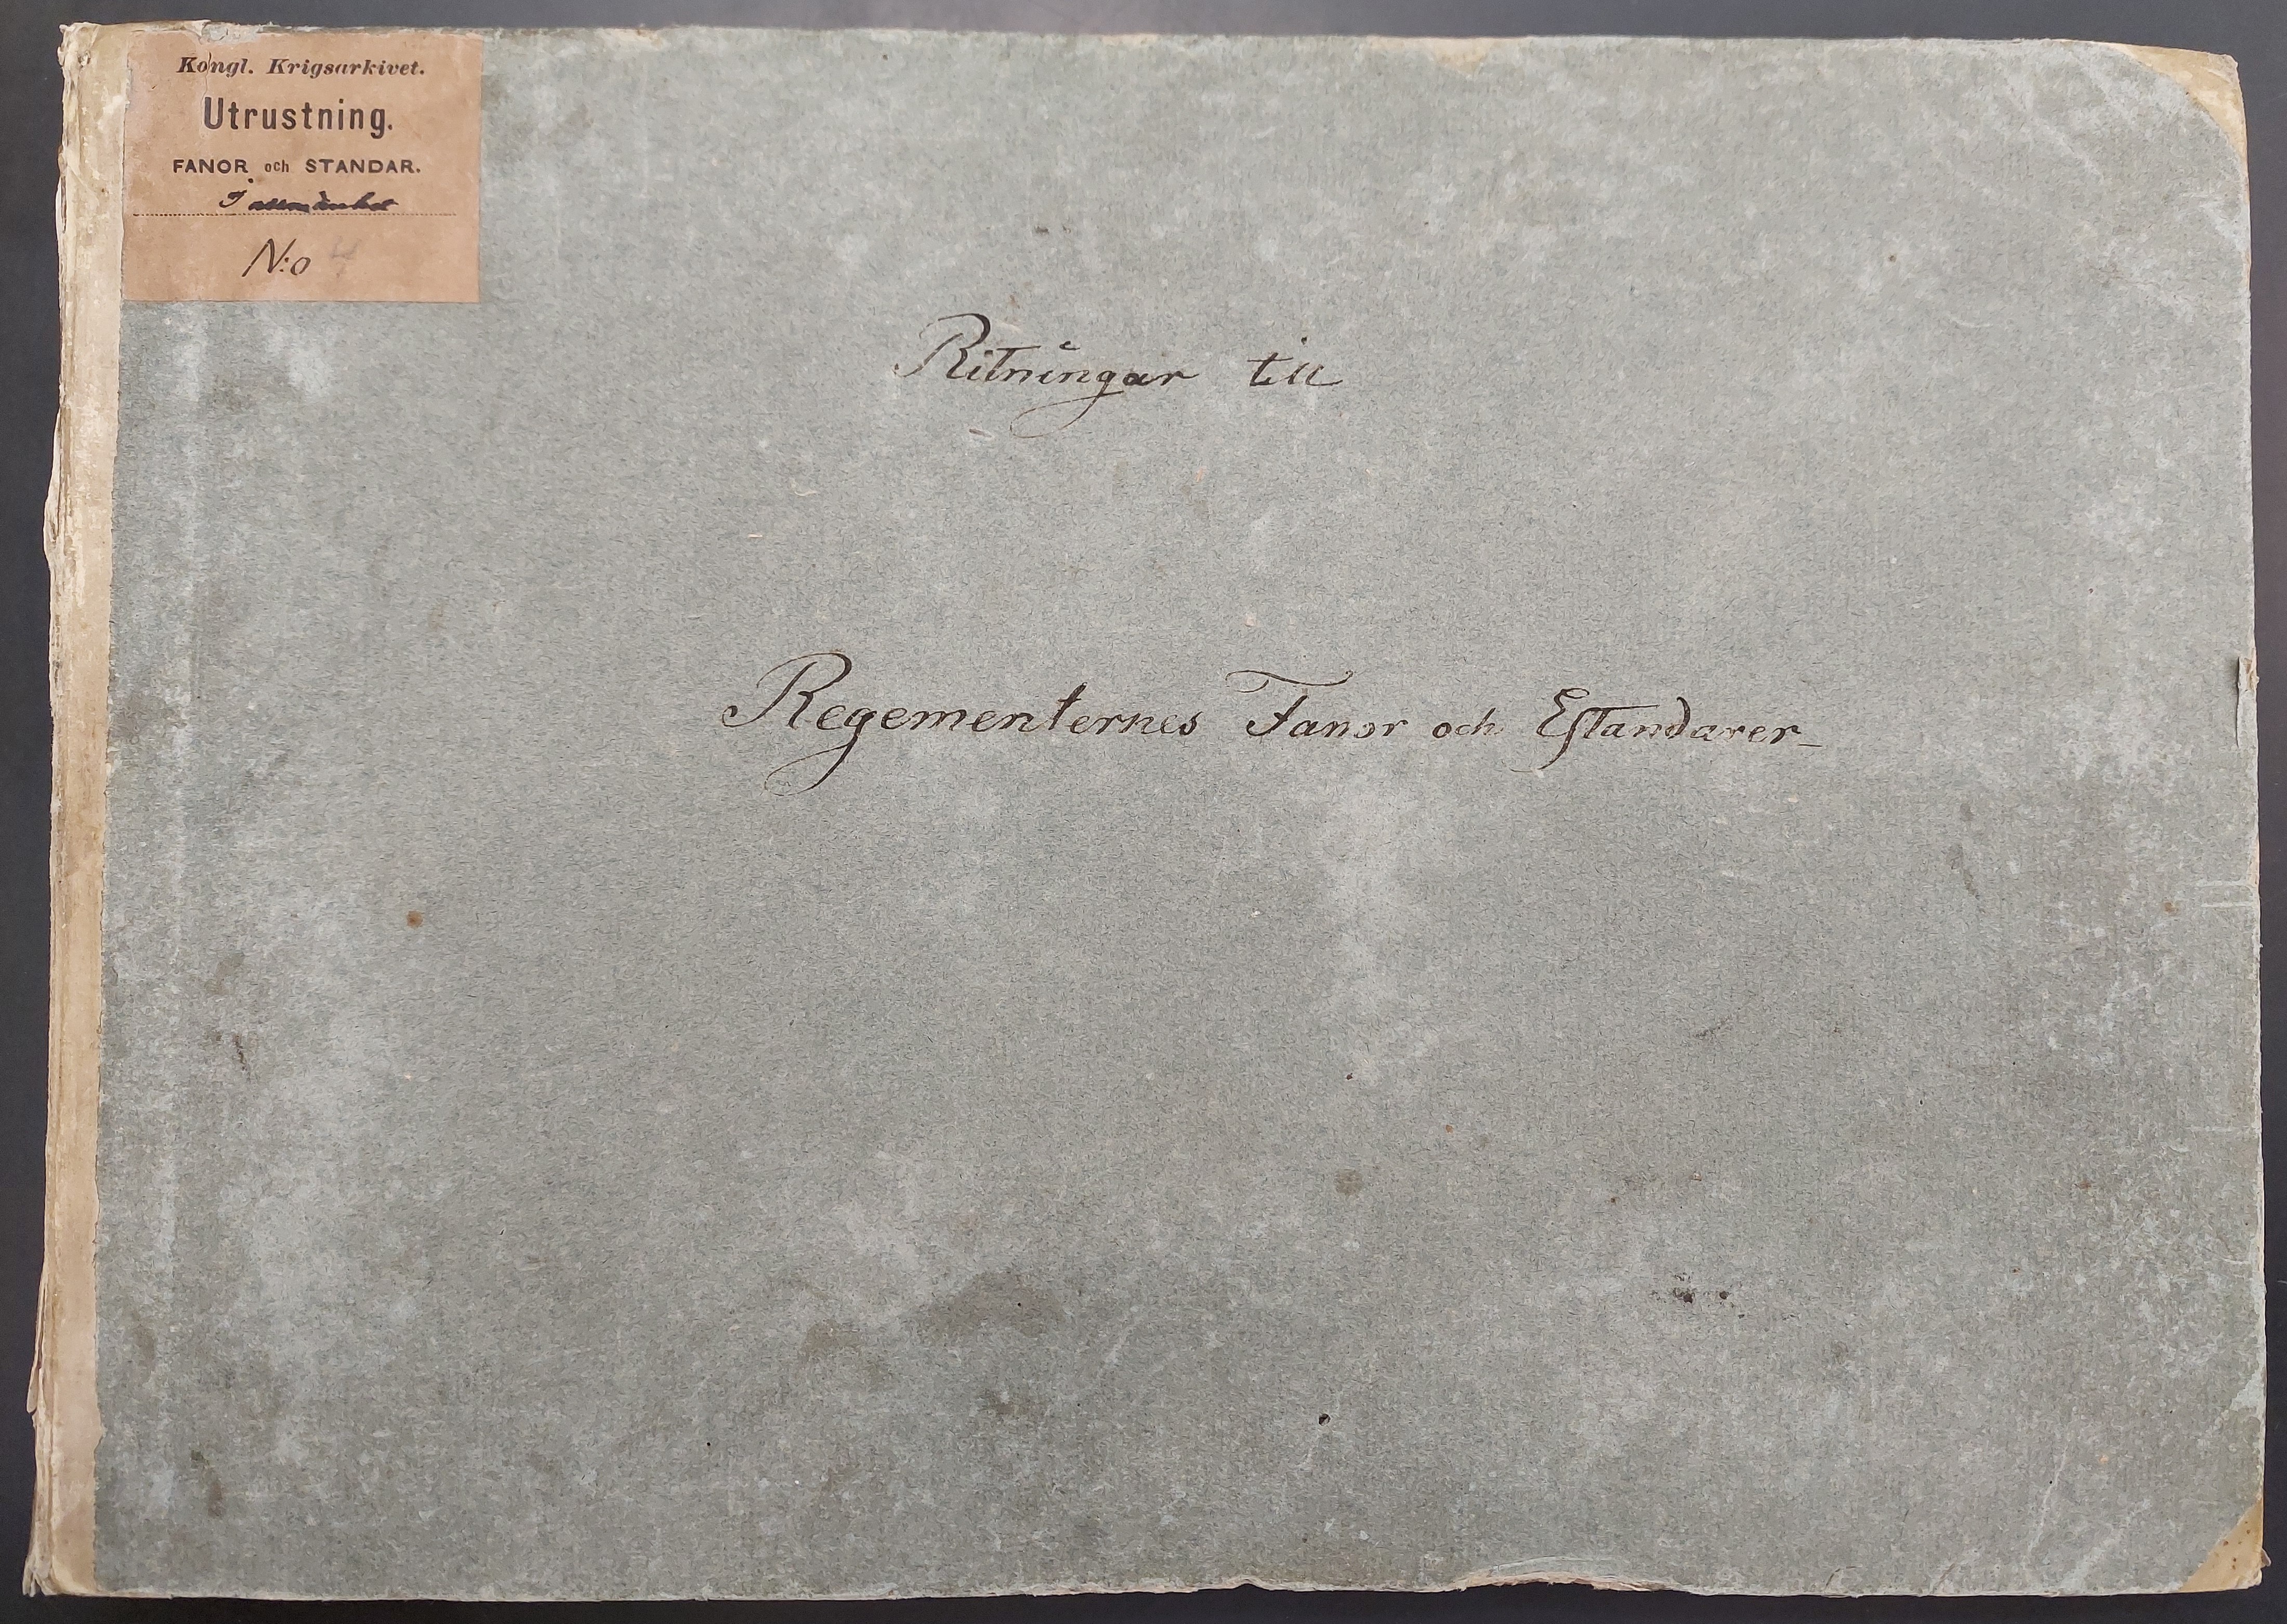 Kongl. Krigsarkivet.
Utrustning.
FANOR och STANDAR.
I allmänhet
N:o 4
Ritningar till
Regementernes Fanor och Estandarer